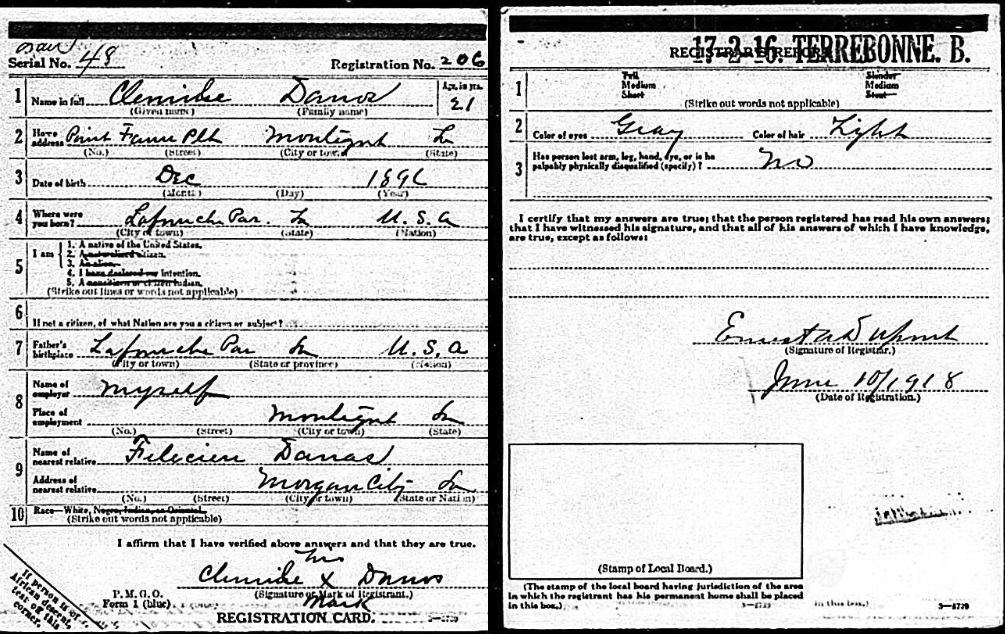 Serial No. 48 Registration No. 206
1 Name in full Clemile Danos Age, in yrs. 21
(Given name) (Family name)
2 Home address Point Farm Plt Montegut La
(No.) (Street) (City or town) (State)
3 Date of birth Dec 1896
(Month) (Day) (Year)
4 Where were you born? Lafourche Par. La U.S.A
(City or town) (State) (Nation)
5 I am
1. A native of the United States.
2. A naturalized citizen.
3. An alien.
4. I have declared my intention.
5. A noncitizen or citizen Indian.
(Strike out lines or words not applicable)
6 If not a citizen, of what Nation are you a citizen or subject?
7 Father's birthplace Lafourche Par La U.S.A
(City or town) (State or province) (Nation)
8 Name of employer myself
Place of employment Montegut La
(No.) (Street) (City or town) (State)
9 Name of nearest relative Felicien Danos
Address of nearest relative Morgan City La
(No.) (Street) (City or town) (State or Nation)
10 Race—White, Negro, Indian, or Oriental.
(Strike out words not applicable)
I affirm that I have verified above answers and that they are true.
his
Clemile X Danos
(Signature or Mark of Registrant.)
Mark
P.M.G.O.
Form 1 (blue).
REGISTRATION CARD. 3—4729
If person is of
African descent,
tear off this
corner.
17-2-16. TERREBONNE. B.
REGISTRAR'S REPORT
1 Tall Slender
Medium Medium
Short Stout
(Strike out words not applicable)
2 Color of eyes Gray Color of hair Light
3 Has person lost arm, leg, hand, eye, or is he
palpably physically disqualified (specify)? No
I certify that my answers are true; that the person registered has read his own answers;
that I have witnessed his signature, and that all of his answers of which I have knowledge,
are true, except as follows:
(Signature of Registrar.)
June 10/1918
(Date of Registration.)
(Stamp of Local Board.)
(The stamp of the local board having jurisdiction of the area
in which the registrant has his permanent home shall be placed
in this box.) 3—4729 in this box.) 3—4729